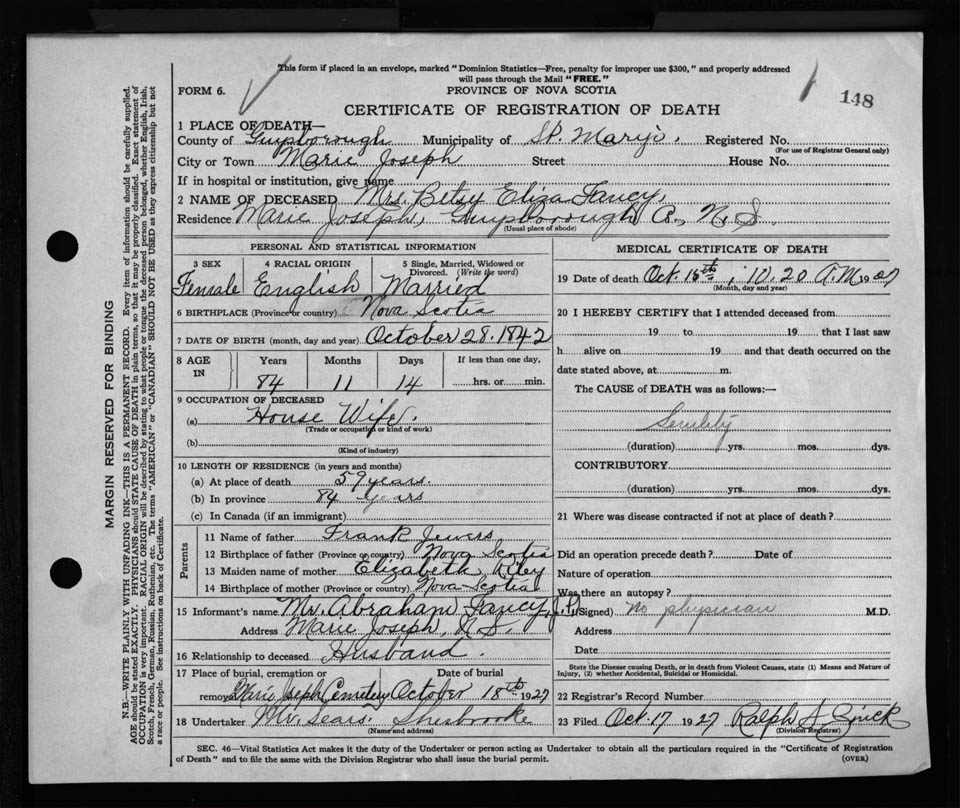 This form if placed in an envelope, marked "Dominion Statistics—Free, penalty for improper use $300," and properly addressed
will pass through the Mail "FREE."
FORM 6.
PROVINCE OF NOVA SCOTIA
148
CERTIFICATE OF REGISTRATION OF DEATH
1 PLACE OF DEATH—
County of Guysborough Municipality of St. Mary's, Registered No.
(For use of Registrar General only)
City or Town Marie Joseph Street House No.
If in hospital or institution, give name
2 NAME OF DECEASED Mrs. Betsy Eliza Fancy,
Residence Marie Joseph, Guysborough Co., N.S.
(Usual place of abode)
PERSONAL AND STATISTICAL INFORMATION
3 SEX 4 RACIAL ORIGIN 5 Single, Married, Widowed or Divorced. (Write the word)
Female English Married
6 BIRTHPLACE (Province or country) Nova Scotia
7 DATE OF BIRTH (month, day and year) October 28. 1842
8 AGE IN Years Months Days If less than one day,
84 11 14 hrs. or min.
9 OCCUPATION OF DECEASED
(a) House Wife.
(Trade or occupation or kind of work)
(b)
(Kind of industry)
10 LENGTH OF RESIDENCE (in years and months)
(a) At place of death 59 years.
(b) In province 84 years
(c) In Canada (if an immigrant)
Parents
11 Name of father Frank Jewers
12 Birthplace of father (Province or country) Nova Scotia
13 Maiden name of mother Elizabeth
14 Birthplace of mother (Province or country) Nova Scotia
15 Informant's name Mr. Abraham Fancy, J.P.
Address Marie Joseph, N.S.
16 Relationship to deceased Husband.
17 Place of burial, cremation or removal Date of burial
Marie Joseph Cemetery October 18th 1927
18 Undertaker Mr. Sears. Sherbrooke
(Name and address)
MEDICAL CERTIFICATE OF DEATH
19 Date of death Oct. 15th, 10.20 A.M 1927
(Month, day and year)
20 I HEREBY CERTIFY that I attended deceased from
19 to 19 that I last saw
h alive on 19 and that death occurred on the
date stated above, at m.
The CAUSE of DEATH was as follows:—
Senility
(duration) yrs. mos. dys.
CONTRIBUTORY
(duration) yrs. mos. dys.
21 Where was disease contracted if not at place of death?
Did an operation precede death? Date of
Nature of operation
Was there an autopsy?
(Signed) No physician M.D.
Address
Date
State the Disease causing Death, or in death from Violent Causes, state (1) Means and Nature of
Injury, (2) whether Accidental, Suicidal or Homicidal.
22 Registrar's Record Number
23 Filed Oct. 17 1927 Ralph
(Division Registrar)
SEC. 46—Vital Statistics Act makes it the duty of the Undertaker or person acting as Undertaker to obtain all the particulars required in the "Certificate of Registration
of Death" and to file the same with the Division Registrar who shall issue the burial permit.
(OVER)
MARGIN RESERVED FOR BINDING
N.B.—WRITE PLAINLY WITH UNFADING INK—THIS IS A PERMANENT RECORD. Every item of information should be carefully supplied.
AGE should be stated EXACTLY. PHYSICIANS should STATE CAUSE OF DEATH in plain terms, so that it may be properly classified. Exact statement of
OCCUPATION is very important. RACIAL ORIGIN will be described by stating to what people or tongue the deceased person belonged, whether English, Irish,
Scotch, French, German, Russian, Ruthenian, etc. The terms "AMERICAN" or "CANADIAN" SHOULD NOT BE USED as they express citizenship but not
a race or people. See instructions on back of Certificate.